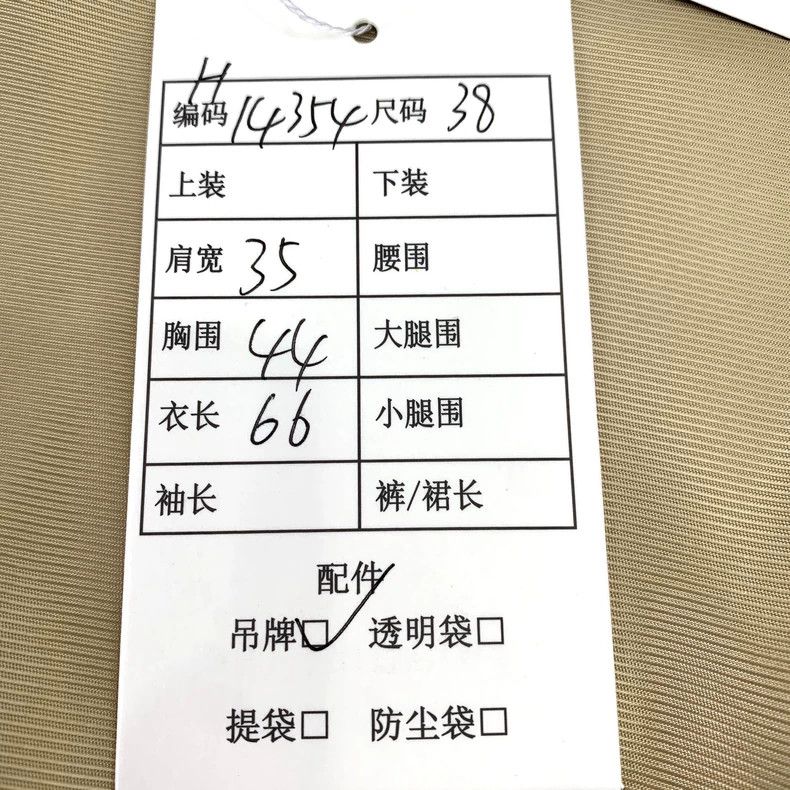 H
编码 14354 尺码 38
上装 下装
肩宽 35 腰围
胸围 44 大腿围
衣长 66 小腿围
袖长 裤/裙长
配件
吊牌☑ 透明袋□
提袋□ 防尘袋□